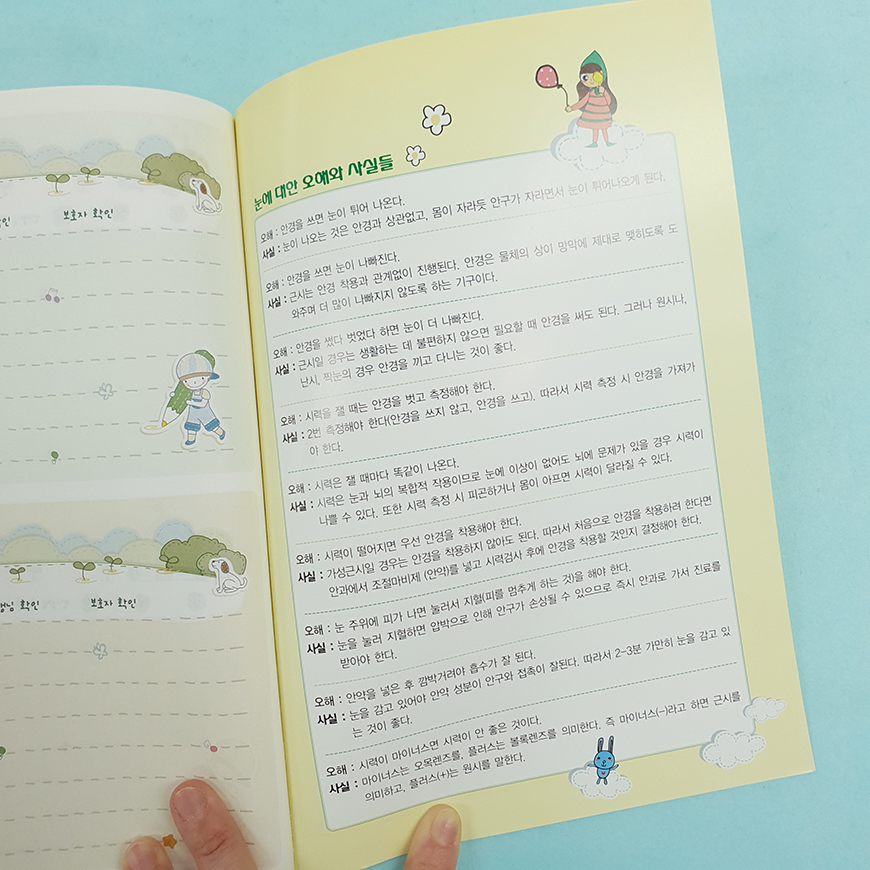 인
보호자 확인
생님 확인
보호자 확인
눈에 대한 오해와 사실들
오해 : 안경을 쓰면 눈이 튀어 나온다.
사실 : 눈이 나오는 것은 안경과 상관없고, 몸이 자라듯 안구가 자라면서 눈이 튀어나오게 된다.
오해 : 안경을 쓰면 눈이 나빠진다.
사실 : 근시는 안경 착용과 관계없이 진행된다. 안경은 물체의 상이 망막에 제대로 맺히도록 도
와주며 더 많이 나빠지지 않도록 하는 기구이다.
오해 : 안경을 썼다 벗었다 하면 눈이 더 나빠진다.
사실 : 근시일 경우는 생활하는 데 불편하지 않으면 필요할 때 안경을 써도 된다. 그러나 원시나,
난시, 짝눈의 경우 안경을 끼고 다니는 것이 좋다.
오해 : 시력을 잴 때는 안경을 벗고 측정해야 한다.
사실 : 2번 측정해야 한다(안경을 쓰지 않고, 안경을 쓰고). 따라서 시력 측정 시 안경을 가져가
야 한다.
오해 : 시력은 잴 때마다 똑같이 나온다.
사실 : 시력은 눈과 뇌의 복합적 작용이므로 눈에 이상이 없어도 뇌에 문제가 있을 경우 시력이
나쁠 수 있다. 또한 시력 측정 시 피곤하거나 몸이 아프면 시력이 달라질 수 있다.
오해 : 시력이 떨어지면 우선 안경을 착용해야 한다.
사실 : 가성근시일 경우는 안경을 착용하지 않아도 된다. 따라서 처음으로 안경을 착용하려 한다면
안과에서 조절마비제 (안약)를 넣고 시력검사 후에 안경을 착용할 것인지 결정해야 한다.
오해 : 눈 주위에 피가 나면 눌러서 지혈(피를 멈추게 하는 것)을 해야 한다.
사실 : 눈을 눌러 지혈하면 압박으로 인해 안구가 손상될 수 있으므로 즉시 안과로 가서 진료를
받아야 한다.
오해 : 안약을 넣은 후 깜박거려야 흡수가 잘 된다.
사실 : 눈을 감고 있어야 안약 성분이 안구와 접촉이 잘된다. 따라서 2-3분 가만히 눈을 감고 있
는 것이 좋다.
오해 : 시력이 마이너스면 시력이 안 좋은 것이다.
사실 : 마이너스는 오목렌즈를, 플러스는 볼록렌즈를 의미한다. 즉 마이너스(-)라고 하면 근시를
의미하고, 플러스(+)는 원시를 말한다.